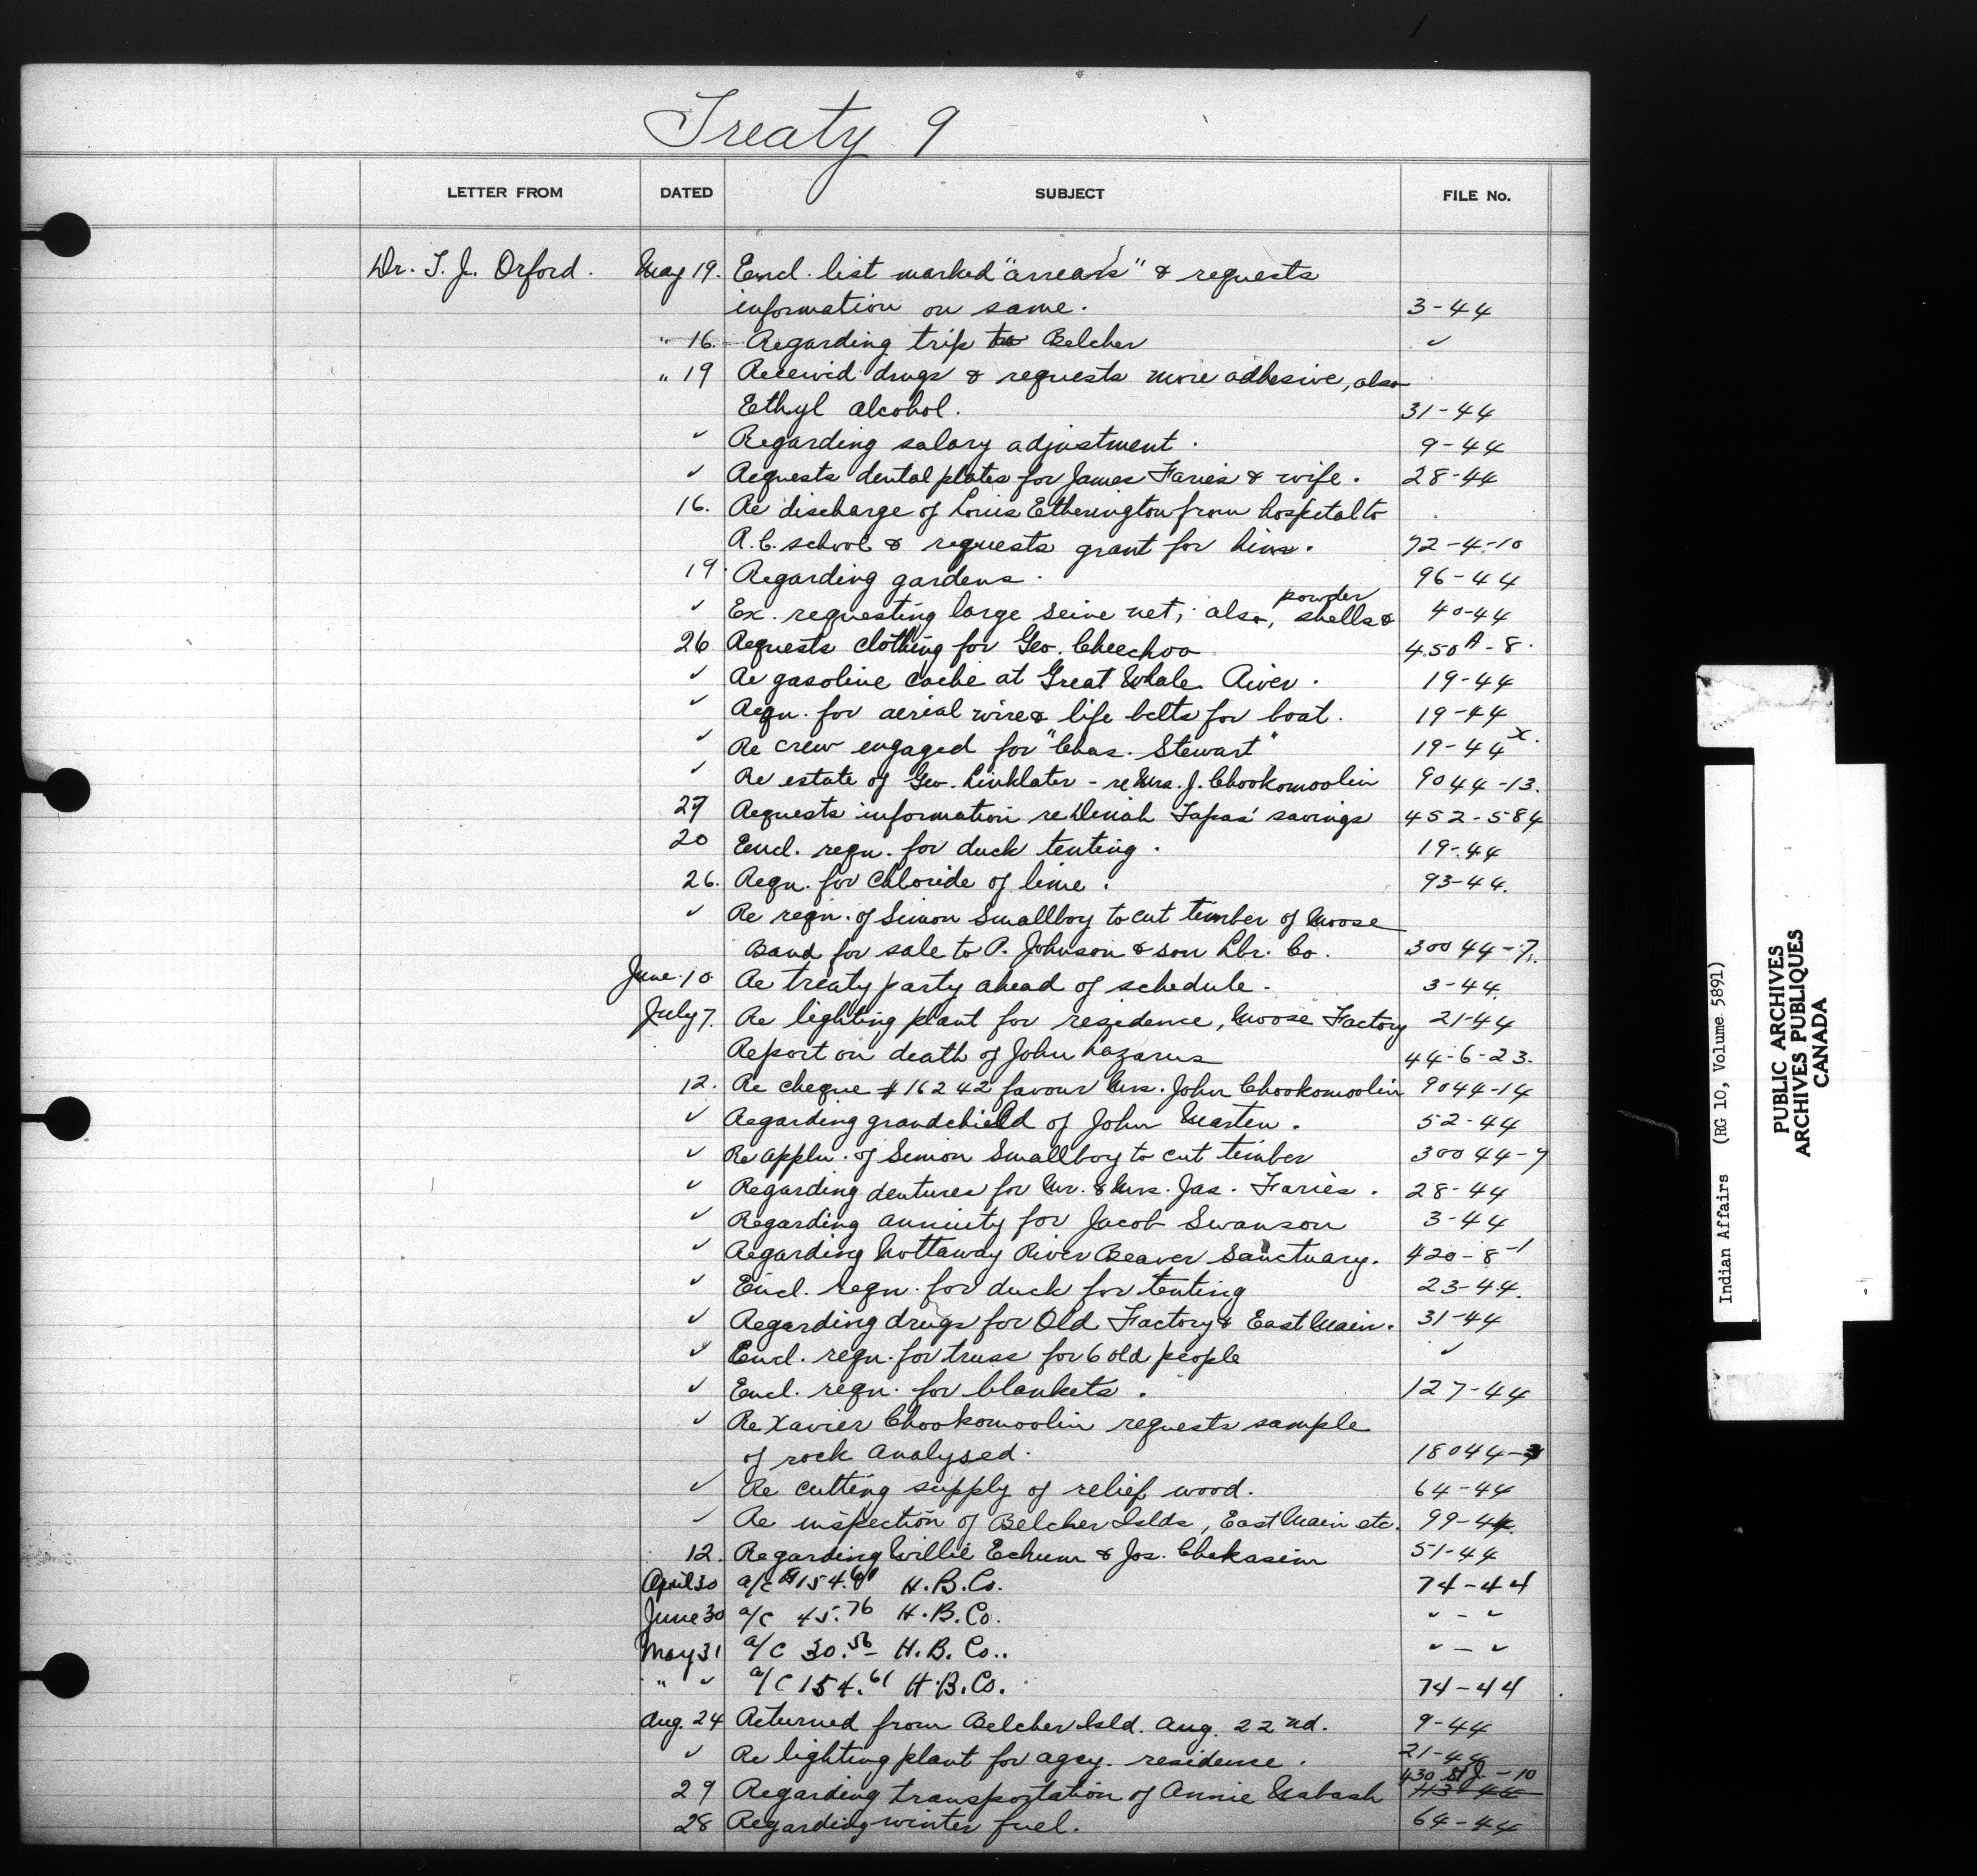 Treaty 9
LETTER FROM DATED SUBJECT FILE No.
Dr. T. J. Orford. May 19. Encl. list marked "arrears" & requests
information on same. 3-44
" 16. Regarding trip to Belcher ✓
" 19 Received drugs & requests more adhesive, also
Ethyl alcohol. 31-44
✓ Regarding salary adjustment. 9-44
✓ Requests dental plates for James Faries & wife. 28-44
16. Re discharge of Louis Etherington from hospital to
R.C. school & requests grant for him. 72-4-10
19. Regarding gardens. 96-44
powder
✓ Ex. requesting large seine net; also, shells & 40-44
26 Requests clothing for Geo. Cheechoo 450A-8.
✓ Re gasoline cache at Great Whale River. 19-44
✓ Reqn. for aerial wire & life belts for boat. 19-44
✓ Re crew engaged for "Chas. Stewart" 19-44 x.
✓ Re estate of Geo. Linklater - re Mrs. J. Chookomoolin 9044-13.
27 Requests information re Deniah Tapas' savings 452-584
20 Encl. reqn. for duck tenting. 19-44
26. Reqn. for Chloride of lime. 93-44.
✓ Re reqn. of Simon Smallboy to cut timber of Moose
Band for sale to P. Johnson & son Lbr. Co. 30044-7.
June 10 Re treaty party ahead of schedule. 3-44.
July 7. Re lighting plant for residence, Moose Factory 21-44
Report on death of John Lazarus 44-6-23.
12. Re cheque #16242 favour Mrs. John Chookomoolin 9044-14
✓ Regarding grandchield of John Marten. 52-44
✓ Re appln. of Simon Smallboy to cut timber 30044-7
✓ Regarding dentures for Mr. & Mrs. Jas. Faries. 28-44
✓ Regarding annuity for Jacob Swanson 3-44
✓ Regarding Nottaway River Beaver Sanctuary. 420-8-1
✓ Encl. reqn. for duck for tenting 23-44.
✓ Regarding drugs for Old Factory & East Main. 31-44
✓ Encl. reqn. for truss for 6 old people ✓
✓ Encl. reqn. for blankets. 127-44
✓ Re Xavier Chookomoolin requests sample
of rock analysed. 18044-3
✓ Re cutting supply of relief wood. 64-44
✓ Re inspection of Belcher Islds, East Main etc. 99-44.
12. Regarding Willie Echum & Jos. Chakasim 51-44
April 30 a/c $154.61 H.B.Co. 74-44
June 30 a/c 45.76 H.B.Co. ✓ - ✓
May 31 a/c 30.56 - H.B.Co.. ✓ - ✓
" ✓ a/c 154.61 H.B.Co. 74-44
Aug. 24 Returned from Belcher Isld. Aug. 22nd. 9-44
✓ Re lighting plant for agcy. residence. 21-44
430 St J.-10
29 Regarding transportation of Annie Nabash
28 Regarding winter fuel. 64-44
Indian Affairs (RG 10, Volume 5891)
PUBLIC ARCHIVES
ARCHIVES PUBLIQUES
CANADA